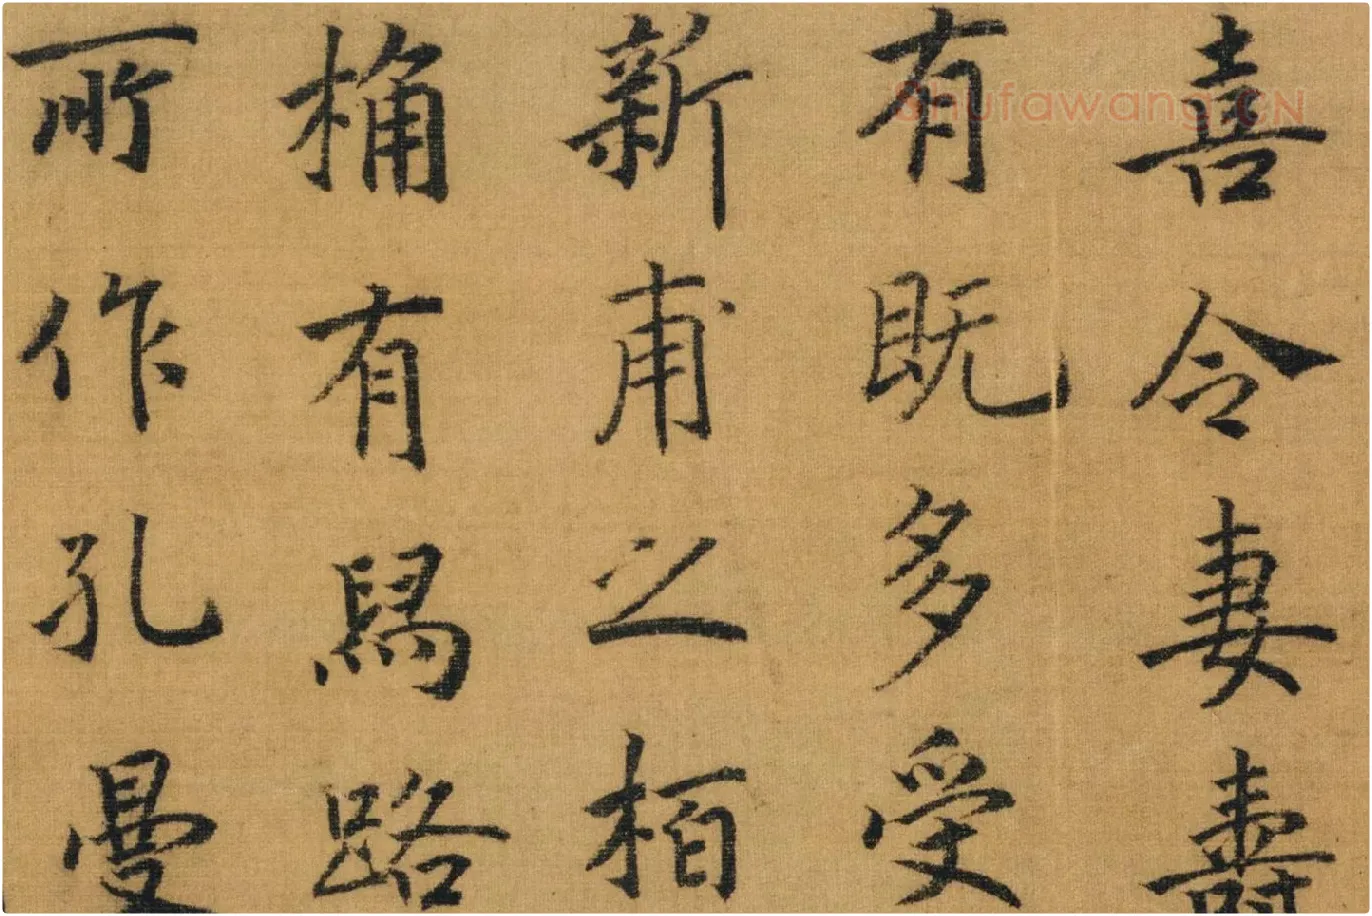 喜令妻壽
有既多受
新甫之柏
桷有舄路
所作孔曼
Shufawang.CN